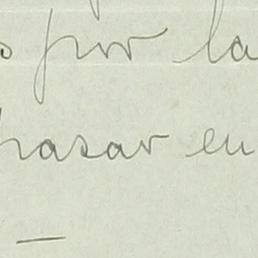 por la
pasar en
—